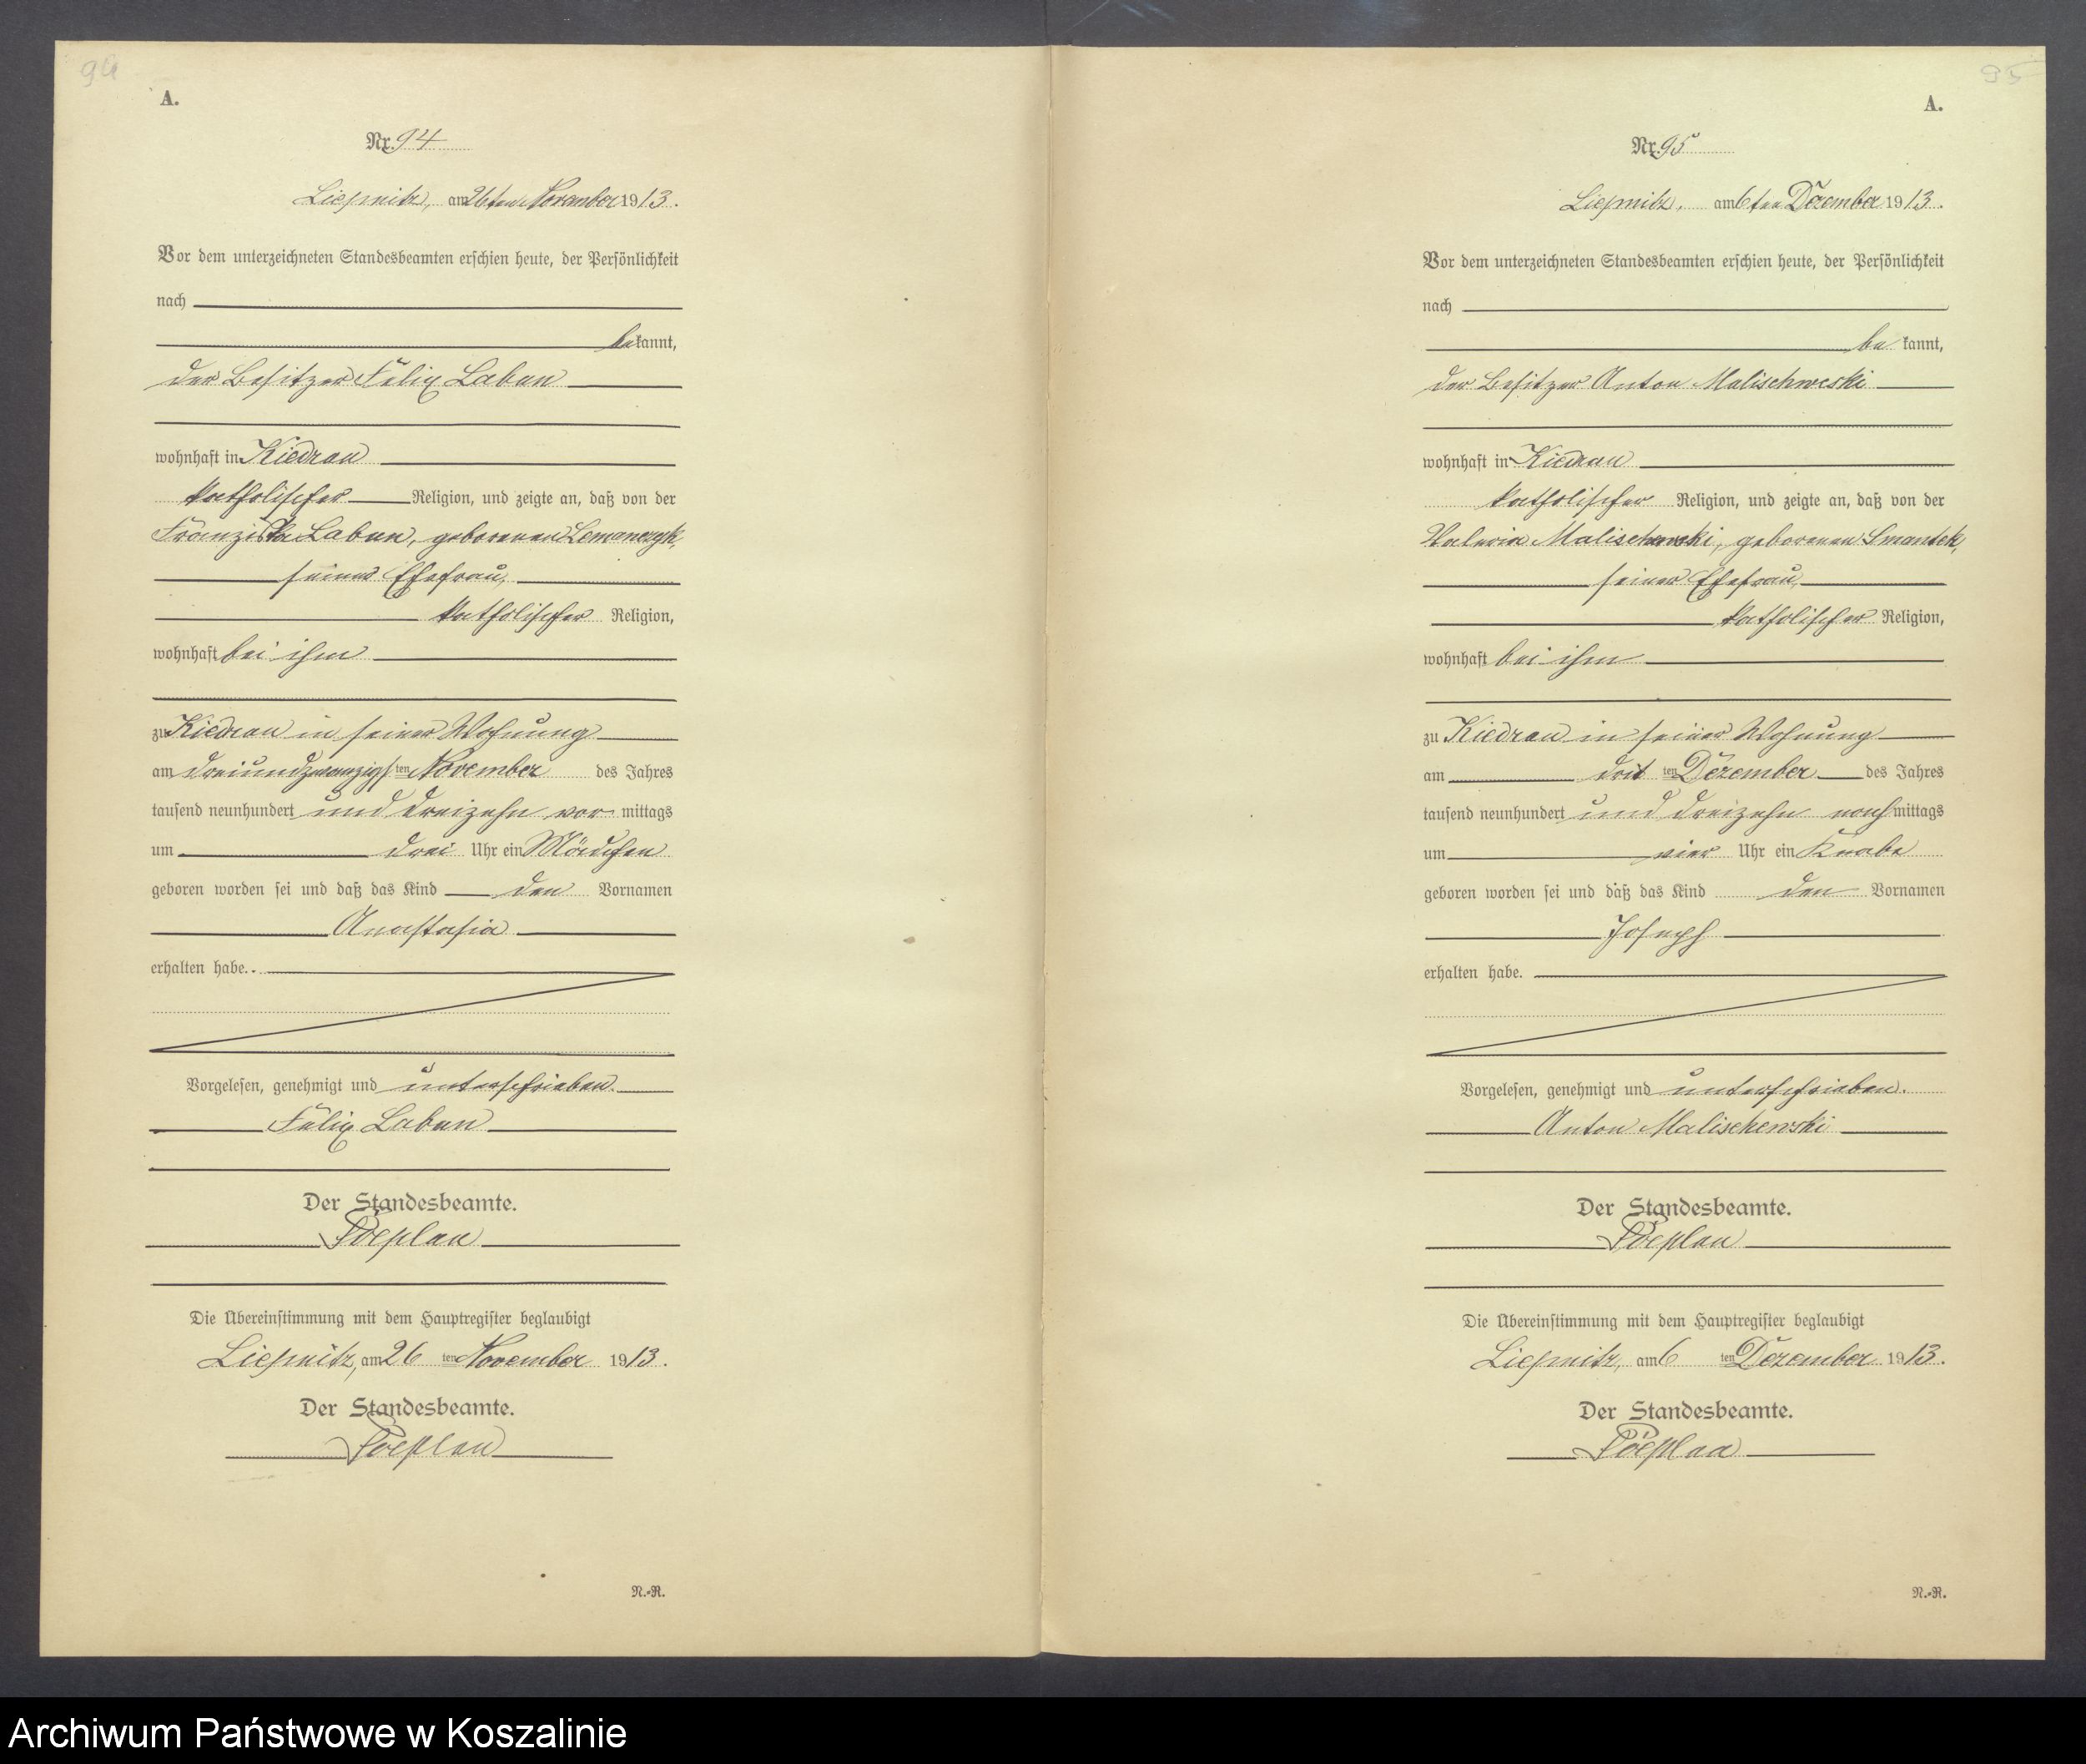 94
A.
Nr. 94
Liepnitz, am 26ten November 1913.
Vor dem unterzeichneten Standesbeamten erschien heute, der Persönlichkeit
nach
bekannt,
der Besitzer Felix Laban
wohnhaft in Kiedrau
katholischer Religion, und zeigte an, daß von der
Franziska Laban, geborenen Lemanczyk,
seiner Ehefrau,
katholischer Religion,
wohnhaft bei ihm
zu Kiedrau in seiner Wohnung
am dreiundzwanzigsten November des Jahres
tausend neunhundert und dreizehn vormittags
um drei Uhr ein Mädchen
geboren worden sei und daß das Kind den Vornamen
Anastasia
erhalten habe.
Vorgelesen, genehmigt und unterschrieben.
Felix Laban
Der Standesbeamte.
Poeplau
Die Übereinstimmung mit dem Hauptregister beglaubigt
Liepnitz, am 26ten November 1913.
Der Standesbeamte.
Poeplau
N.-R.
95
A.
Nr. 95
Liepnitz, am 6ten Dezember 1913.
Vor dem unterzeichneten Standesbeamten erschien heute, der Persönlichkeit
nach
bekannt,
der Besitzer Anton Malischweski
wohnhaft in Kiedrau
katholischer Religion, und zeigte an, daß von der
Valeria Malischewski, geborenen Smantek,
seiner Ehefrau,
katholischer Religion,
wohnhaft bei ihm
zu Kiedrau in seiner Wohnung
am dritten Dezember des Jahres
tausend neunhundert und dreizehn nachmittags
um vier Uhr ein Knabe
geboren worden sei und daß das Kind den Vornamen
Joseph
erhalten habe.
Vorgelesen, genehmigt und unterschrieben.
Anton Malischewski
Der Standesbeamte.
Poeplau
Die Übereinstimmung mit dem Hauptregister beglaubigt
Liepnitz, am 6ten Dezember 1913.
Der Standesbeamte.
Poeplau
N.-R.
Archiwum Państwowe w Koszalinie